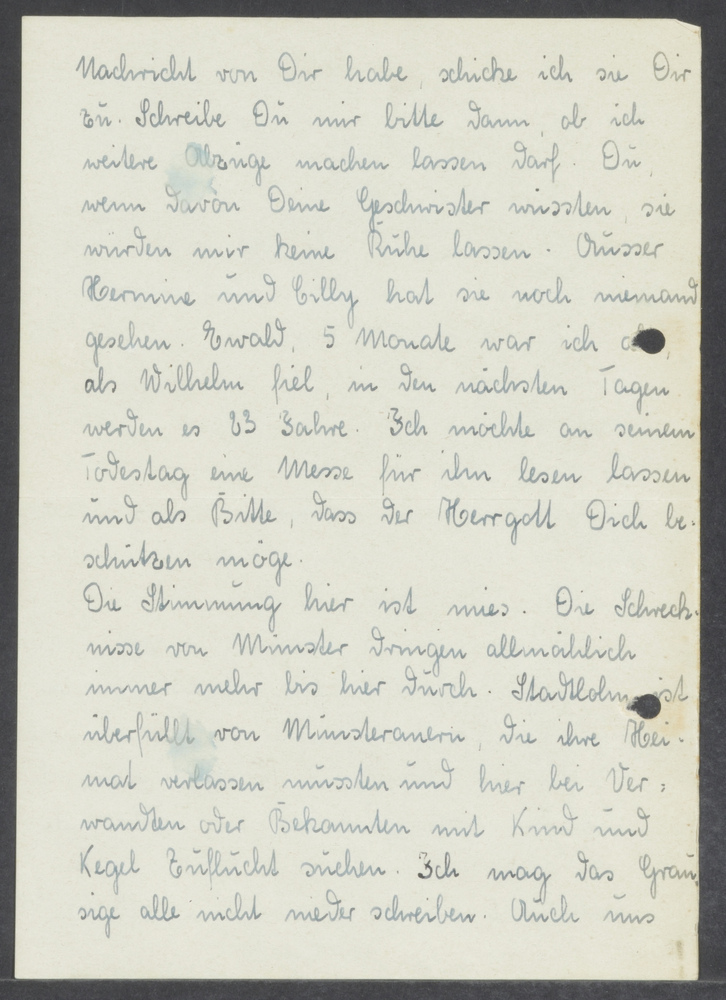 Nachricht von Dir habe, schicke ich sie Dir
zu. Schreibe Du mir bitte dann, ob ich
weitere Abzüge machen lassen darf. Du,
wenn davon Deine Geschwister wüssten, sie
würden mir keine Ruhe lassen. Ausser
Hermine und Cilly hat sie noch niemand
gesehen. Ewald, 5 Monate war ich
als Wilhelm fiel, in den nächsten Tagen
werden es 23 Jahre. Ich möchte an seinem
Todestag eine Messe für ihn lesen lassen
und als Bitte, dass der Herrgott Dich be-
schützen möge.
Die Stimmung hier ist mies. Die Schreck-
nisse von Münster dringen allmählich
immer mehr bis hier durch. Stadtlohn ist
überfüllt von Münsteranern, die ihre Hei-
mat verlassen mussten und hier bei Ver-
wandten oder Bekannten mit Kind und
Kegel Zuflucht suchen. Ich mag das Grau-
sige alle nicht nieder schreiben. Auch uns